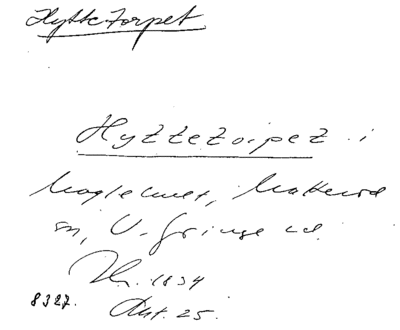 Hyttetorpet
Hyttetorpet i
Maglehult, Matterød
sn, V. Göinge hd.
Th. 1834
8327. Akt. 25.